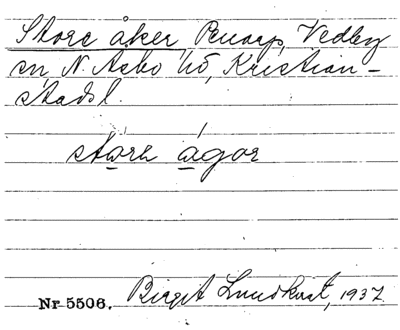 Store åker, Perstorp, Vedby
sn, N. Åsbo hd, Kristian-
stads l.
storə ågər
Nr 5506. Birgit Lundkvist, 1937.